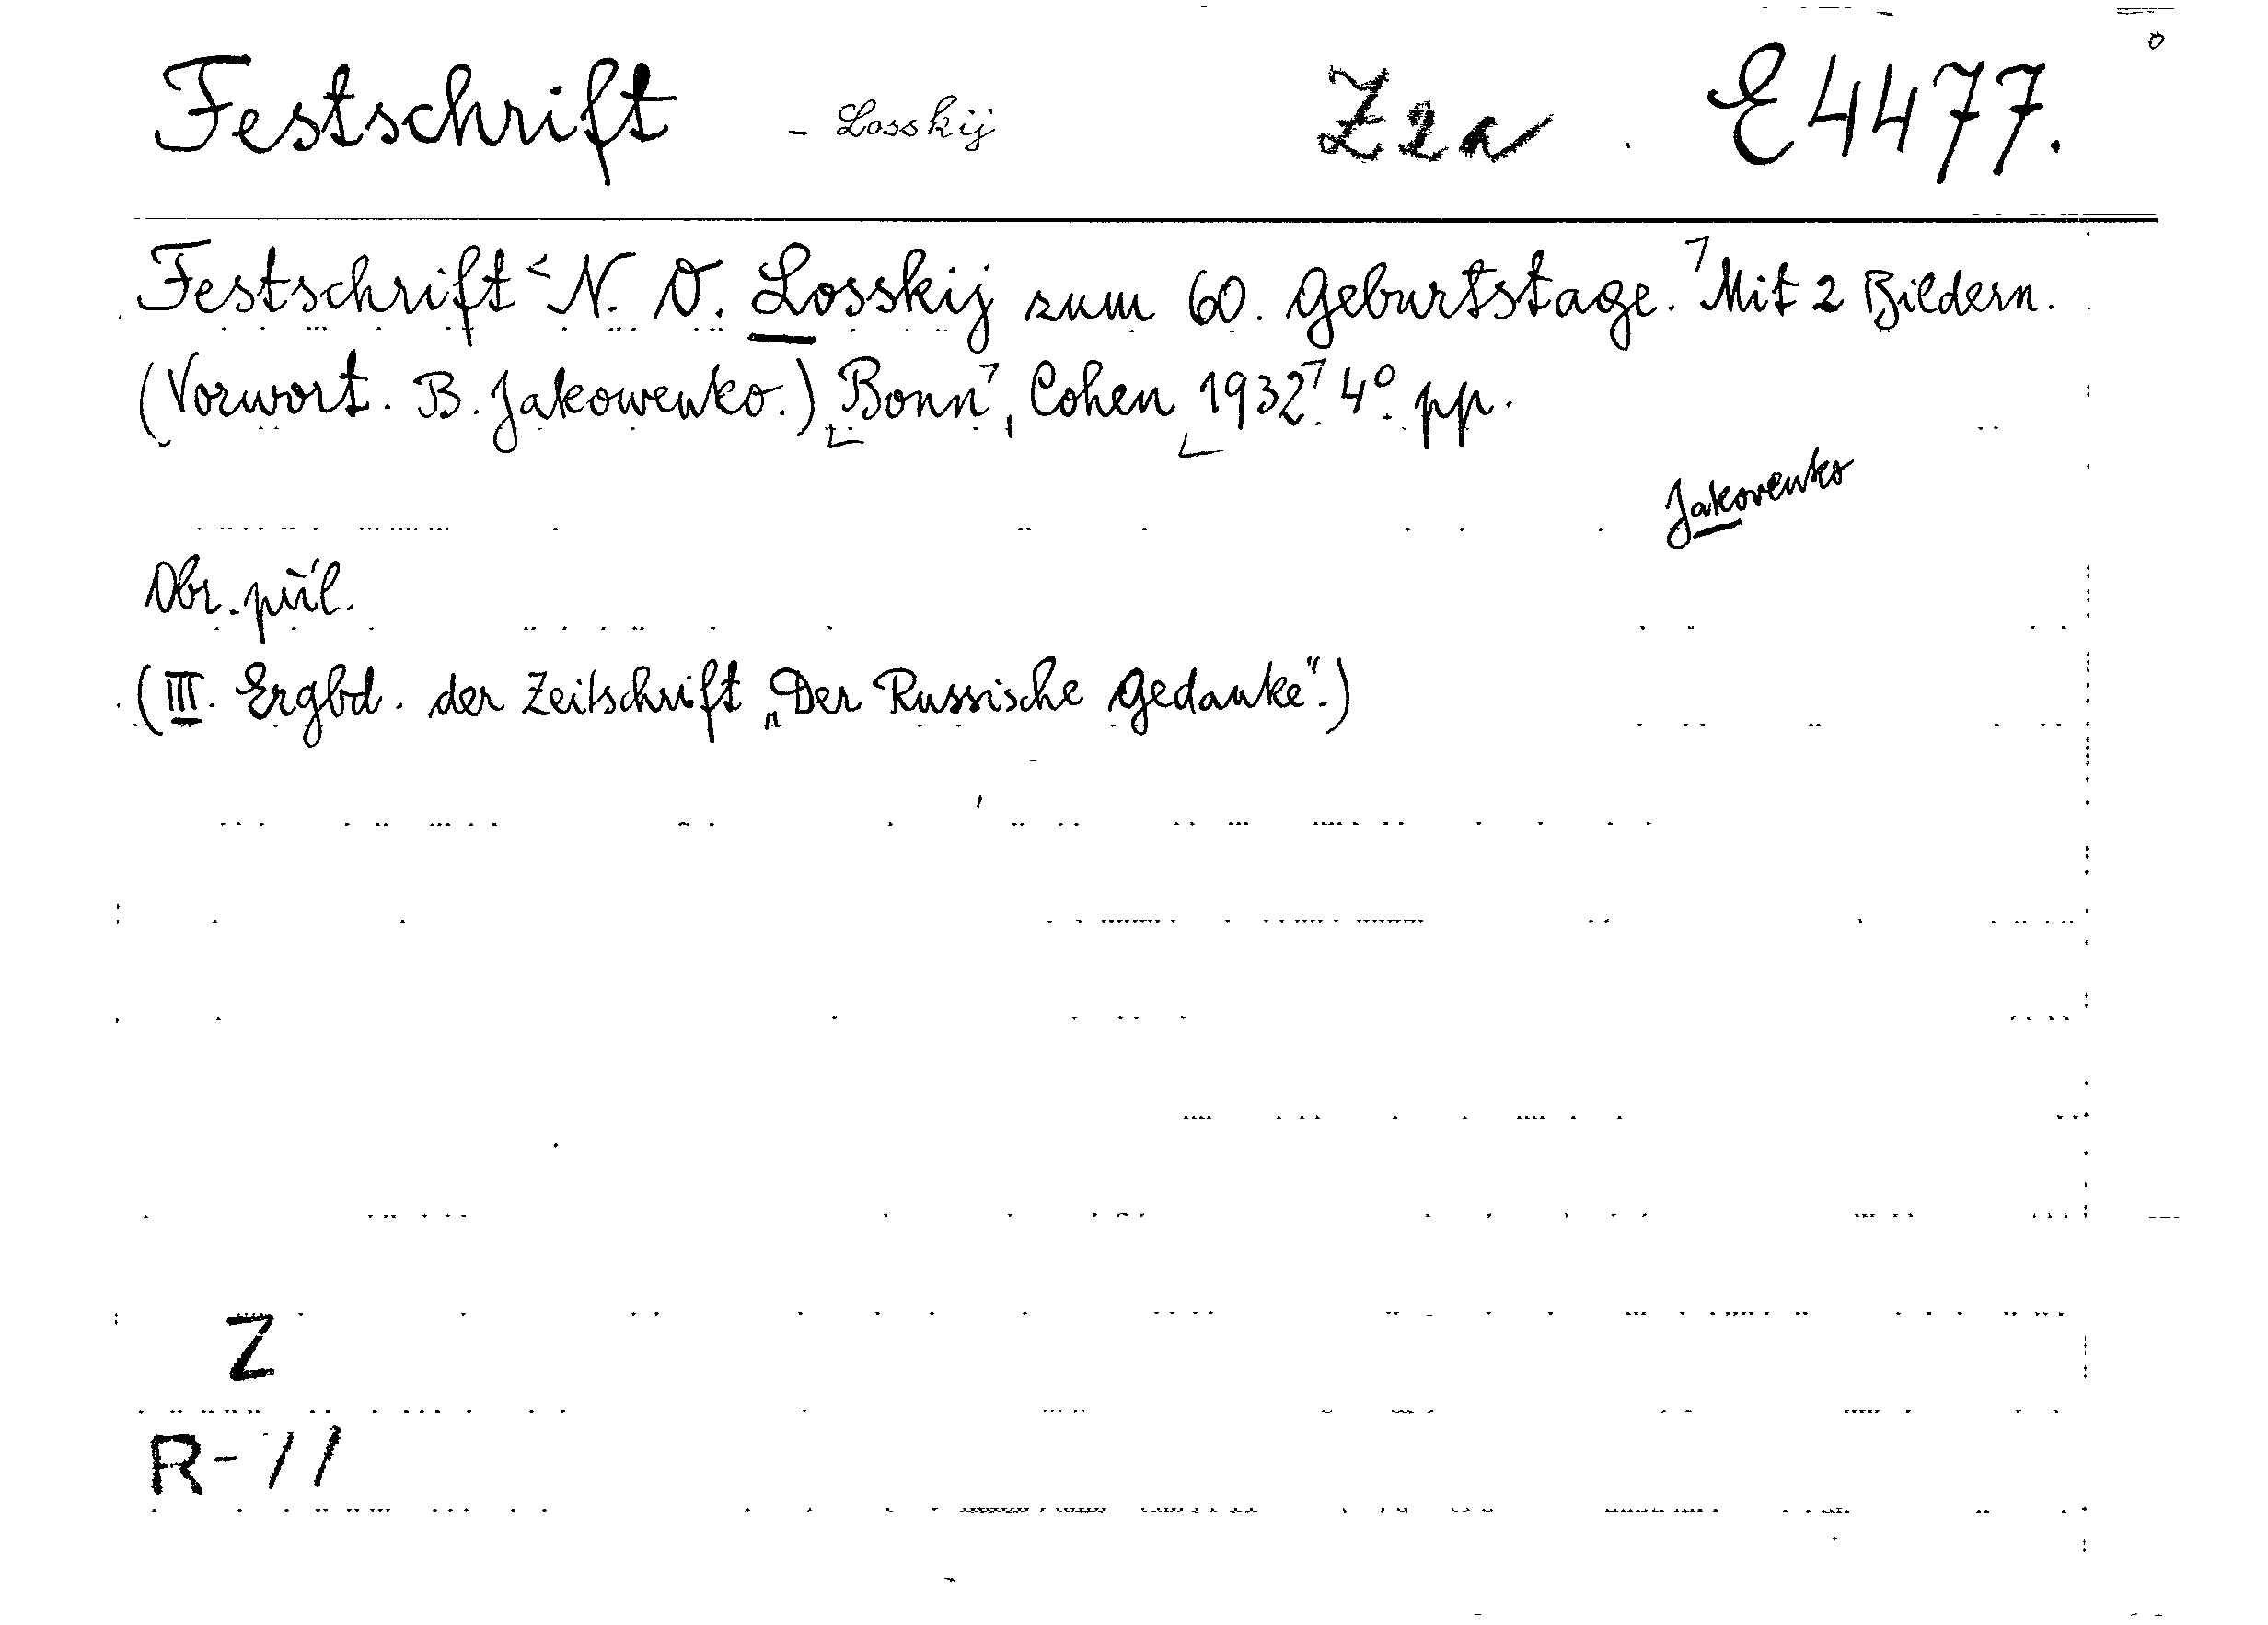 Festschrift - Losskij Z2a E4477.
Festschrift N. O. Losskij zum 60. Geburtstage. Mit 2 Bildern.
(Vorwort. B. Jakowenko.) Bonn, Cohen 1932. 4° pp.
Jakovenko
Obr. příl.
(III. Ergbd. der Zeitschrift „Der Russische Gedanke“.)
Z
R-11